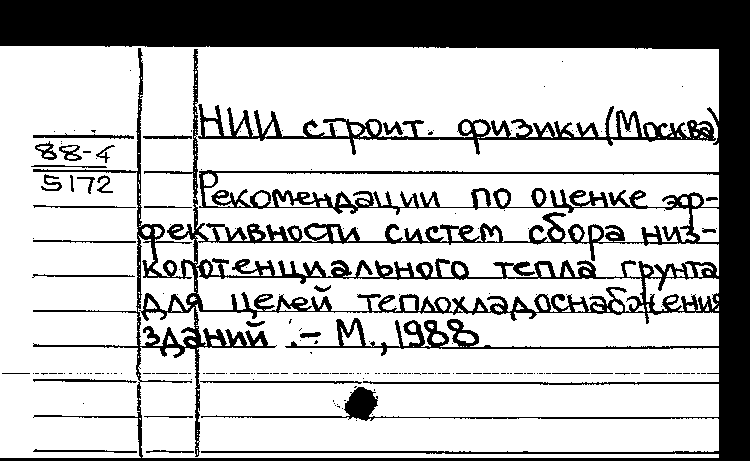 НИИ строит. физики (Москва)
88-4
5172
Рекомендации по оценке эф-
фективности систем сбора низ-
копотенциального тепла грунта
для целей теплохладоснабжения
зданий. - М., 1988.